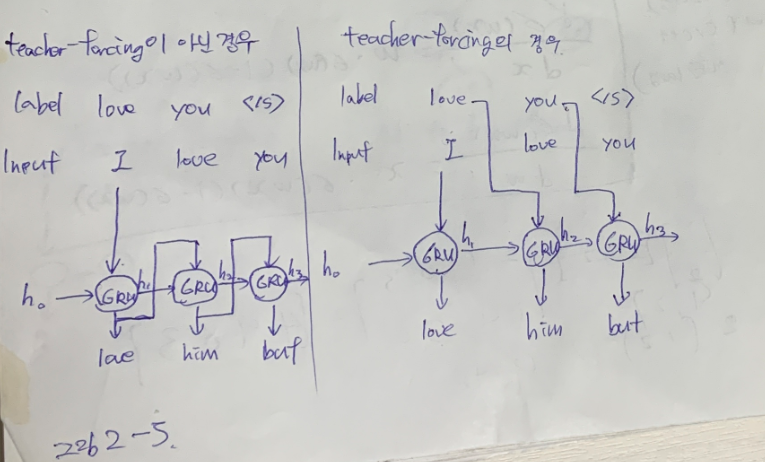 teacher-forcing이 아닌 경우
label love you </s>
Input I love you
h₀ GRU h₁ GRU h₂ GRU h₃
love him but
teacher-forcing의 경우
label love you </s>
Input I love you
h₀ GRU h₁ GRU h₂ GRU h₃
love him but